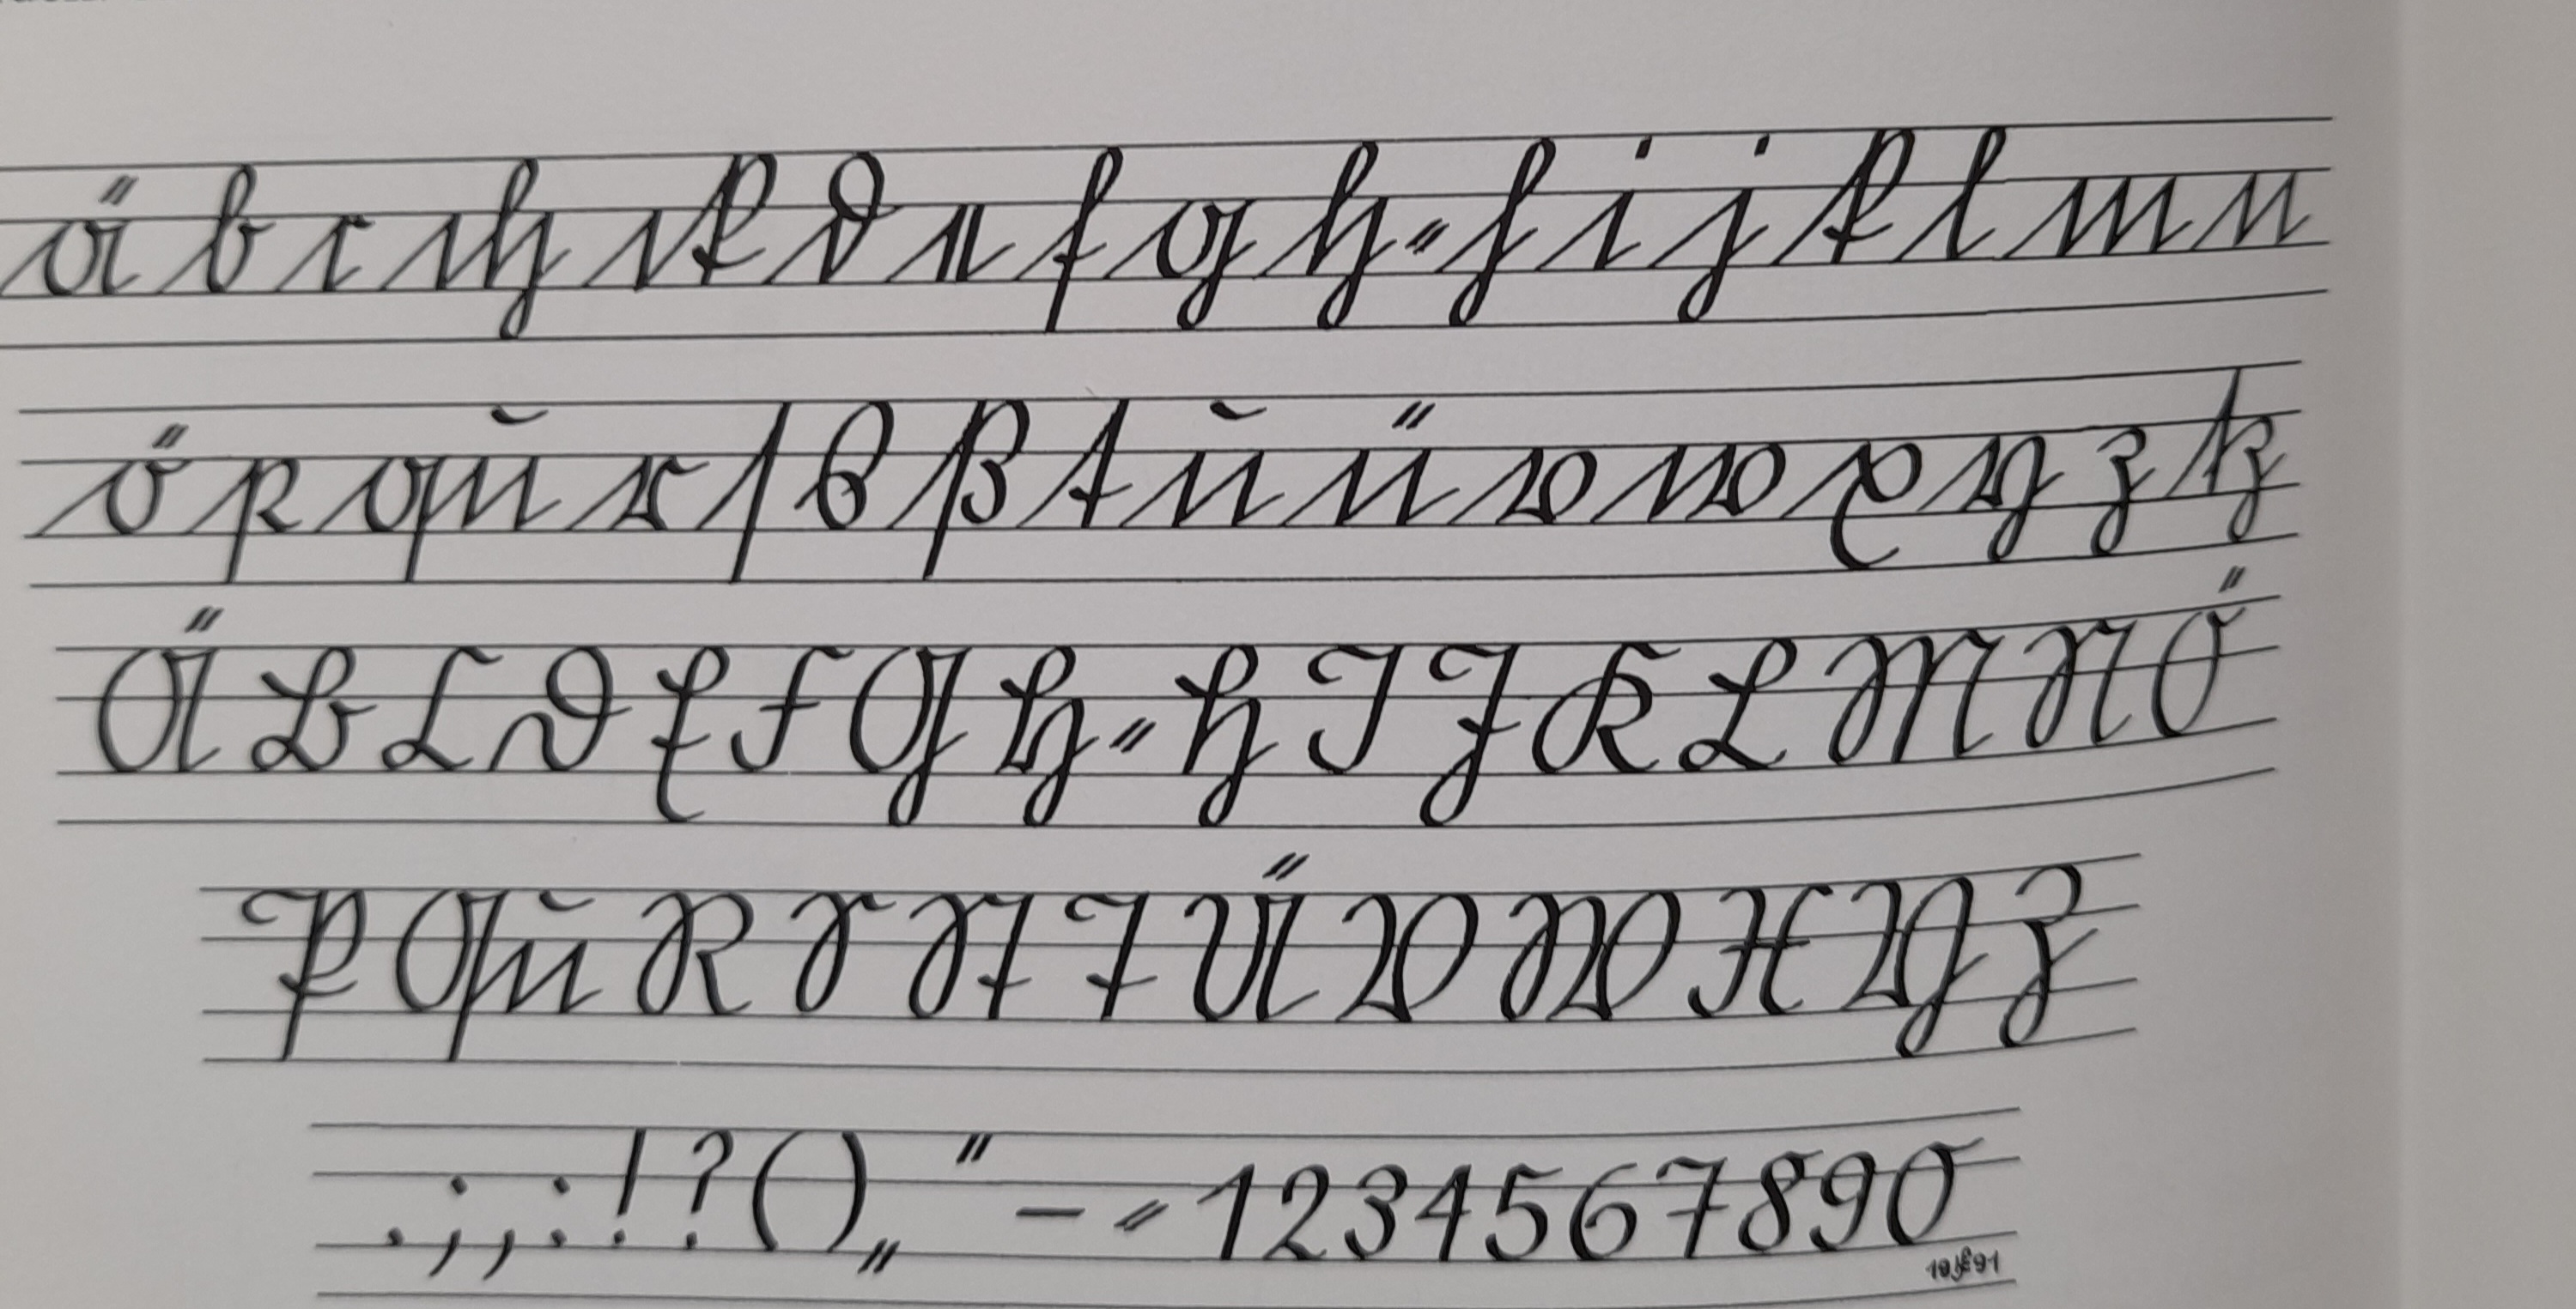 ä b c ch ck d e f g h = h i j k l m n
ö p qŭ r ſ s ß t ŭ ü v w x y z tz
Ä B C D E F G H = H I J K L M N Ö
P Qŭ R S St T Ü V W X Y Z
. ; , : ! ? ( ) „ “ – = 1 2 3 4 5 6 7 8 9 0